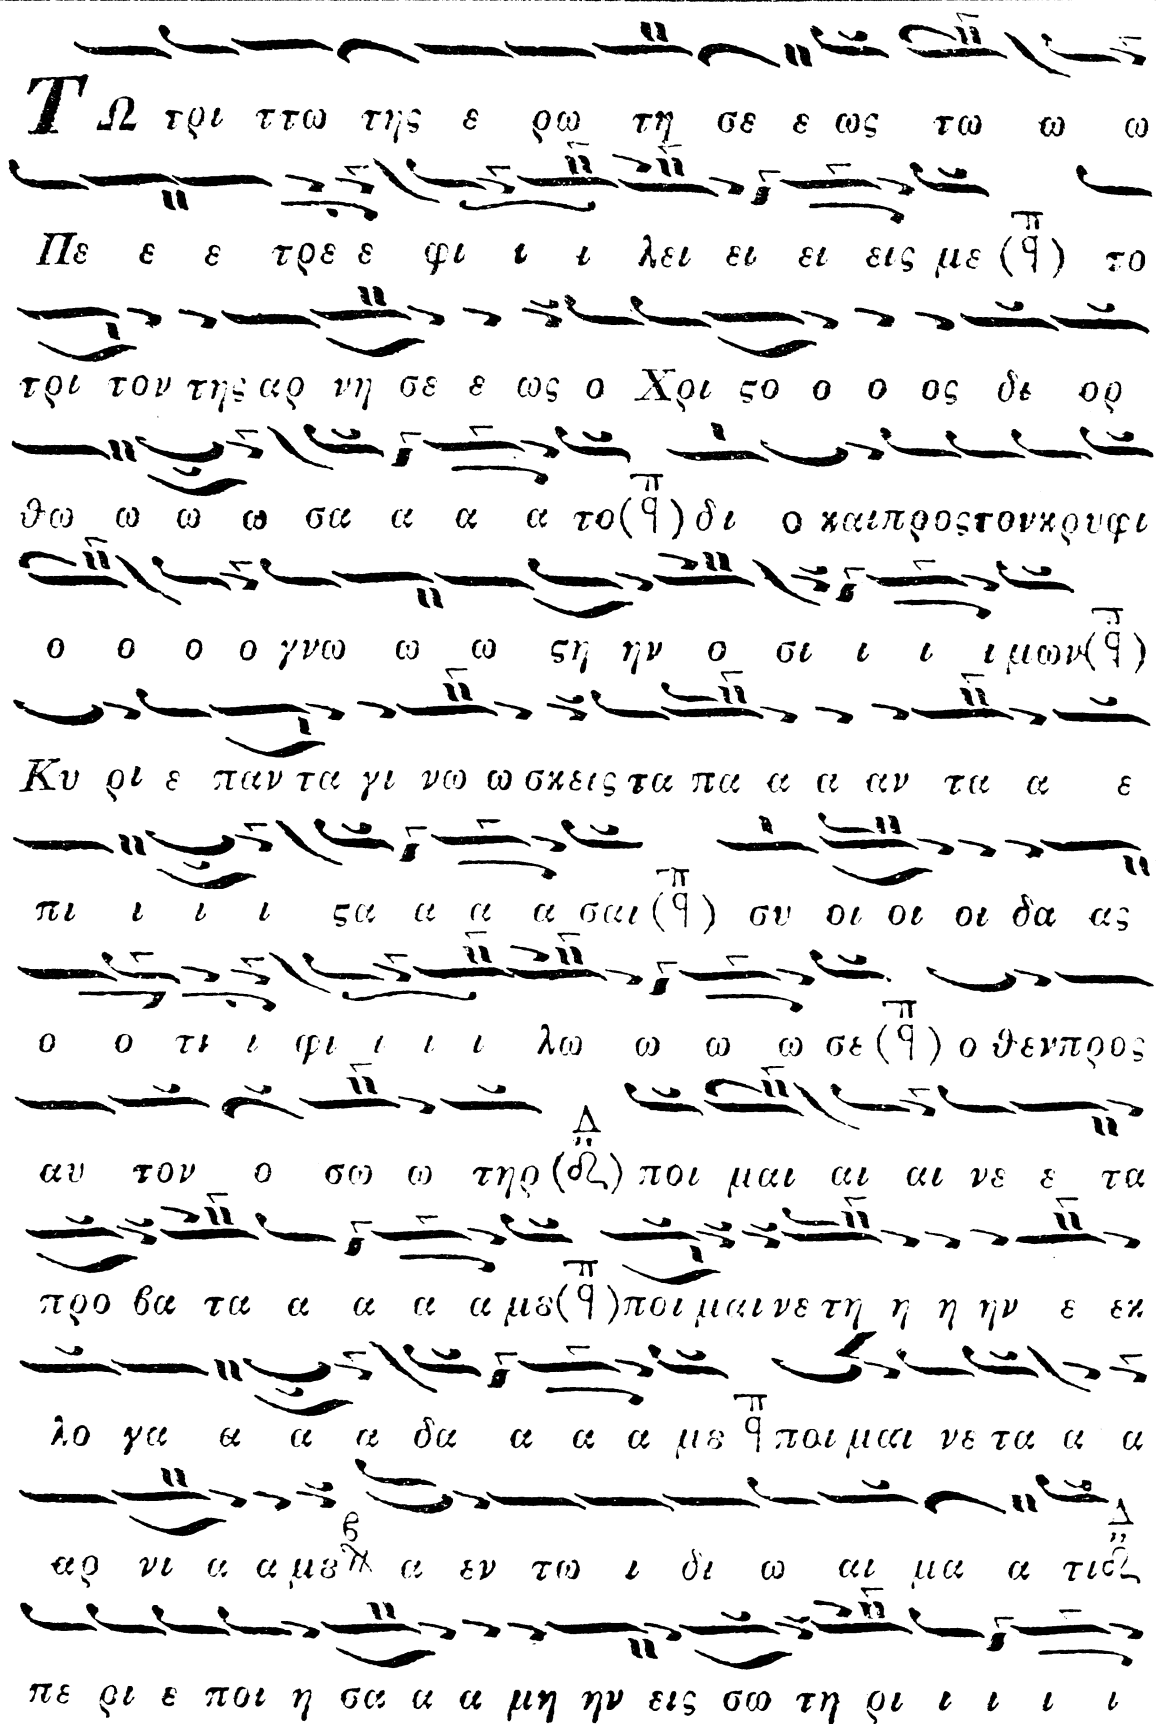 ΤΩ τρι ττω της ε ρω τη σε ε ως τω ω ω
Πε ε ε τρε ε φι ι ι λει ει ει εις με (π q) το
τρι τον της αρ νη σε ε ως ο Χρι ϛο ο ο ος δι ορ
θω ω ω ω σα α α α το (π q) δι ο και προς τον κρυφι
ο ο ο ο γνω ω ω ϛη ην ο σι ι ι ι μων (π q)
Κυ ρι ε παν τα γι νω ω σκεις τα πα α α αν τα α ε
πι ι ι ι ϛα α α α σαι (π q) συ οι οι οι δα ας
ο ο τι ι φι ι ι ι λω ω ω ω σε (π q) ο θεν προς
αυ τον ο σω ω τηρ (Δ) ποι μαι αι αι νε ε τα
προ βα τα α α α α με (π q) ποι μαι νε τη η η ην ε εκ
λο γα α α α δα α α α με π q ποι μαι νε τα α α
αρ νι α α με β α εν τω ι δι ω αι μα α τι Δ
πε ρι ε ποι η σα α α μη ην εις σω τη ρι ι ι ι ι